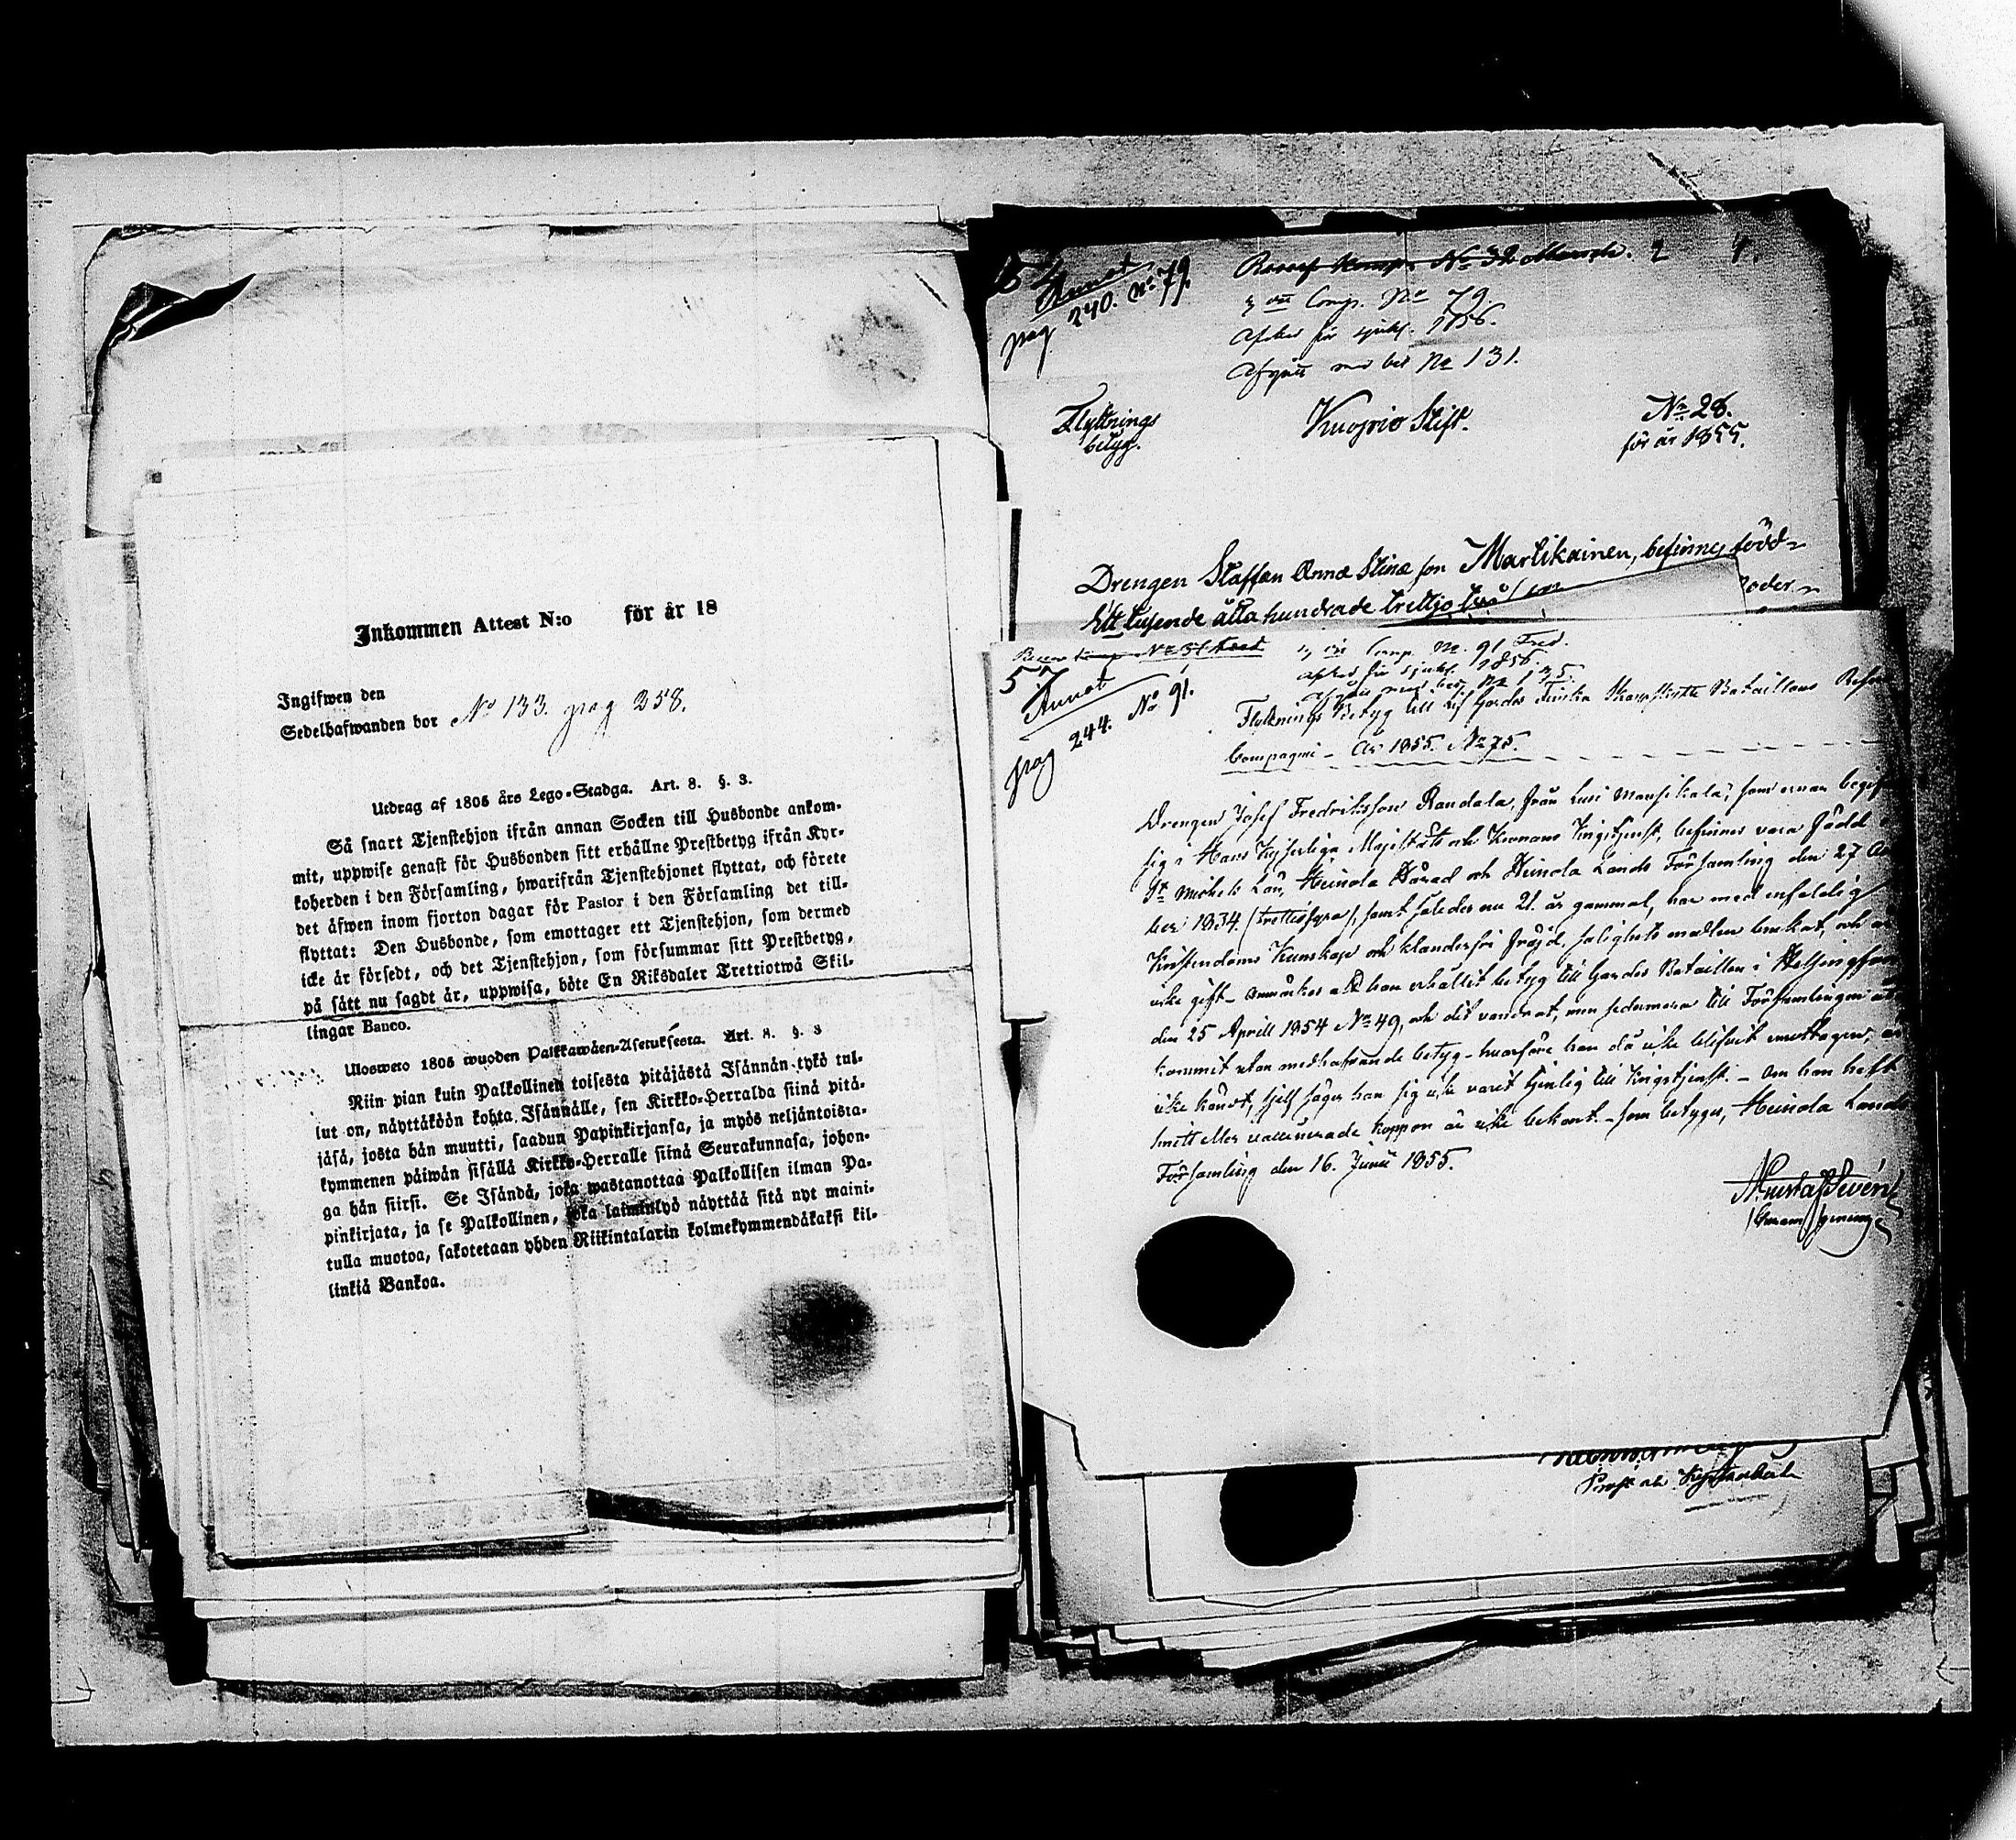 Inkommen Attest N:o för år 18
Ingifwen den
Sedelhafwanden bor No 133. pag 258.
Utdrag af 1805 års Lego-Stadga. Art. 8. §. 3.
Så snart Tjenstehjon ifrån annan Socken till Husbonde ankom-
mit, uppwise genast för Husbonden sitt erhållne Prestbetyg ifrån Kyr-
koherden i den Församling, hwarifrån Tjenstehjonet flyttat, och förete
det äfwen inom fjorton dagar för Pastor i den Församling det till-
flyttat: Den Husbonde, som emottager ett Tjenstehjon, som dermed
icke är försedt, och det Tjenstehjon, som försummar sitt Prestbetyg,
på sätt nu sagdt är, uppwisa, böte En Riksdaler Trettiotwå Skil-
lingar Banco.
Ulosweto 1805 wuoden Palkkawäen-Asetuksesta. Art. 8. §. 3
Niin pian kuin Palkollinen toisesta pitäjästä Isännän tykö tul-
lut on, näyttäköön kohta Isännälle, sen Kirkko-Herralda siinä pitä-
jäsä, josta hän muutti, saadun Papinkirjansa, ja myös neljäntoista-
kymmenen päiwän sisällä Kirkko-Herralle siinä Seurakunnasa, johon-
ga hän siirsi. Se Isändä, joka wastanottaa Palkollisen ilman Pa-
pinkirjata, ja se Palkollinen, joka laiminlyö näyttää sitä nyt maini-
tulla muotoa, sakotetaan yhden Riikintalarin kolmekymmendäkaksi kil-
linkiä Bankoa.
54
Annot
pag 240. No 79.
No 32
Comp. No 79.
1856.
No 131.
Flyttnings
betyg.
Kuopio Stift.
No 28.
för år 1855.
Drengen Staffan Anna Stina son Martikainen, befinnes född
Ett tusende åtta hundrade trettjo
57
Annot
pag 244. No 91.
Comp. No. 91 Fred.
1856.
No 135.
Flyttnings Betyg till Lif Gardes Finska Skarpskytte Bataillons
Compagni – År 1855. No 75.
Drengen Josef Fredriksson Randala, från Lusi Mansikala, som ernar
sig i Hans Kejserliga Majestäts och Kronans Krigstjenst, befinnes vara född
St Michels Län, Heinola Härad och Heinola Lands Församling den 27
ber 1834. (trettiofyra), samt således nu 21. år gammal, har med enfaldig
Kristendoms Kunskap och klanderfri fräjd, salighets medlen brukat, och är
icke gift – anmärkes att han erhållit betyg till Gardes Bataillon i Helsingfors
den 25 Aprill 1854 No 49, och dit vandrat, men sedermera till Församlingen
kommit utan medhafvande betyg – hvarföre han då icke blifvit emottagen, är
icke kändt, sjelf säger han sig icke varit tjenlig till Krigstjenst. – Om han haft
smitt eller vaccinerade koppor är icke bekant. – som betygas, Heinola Lands
Församling den 16. Junii 1855.